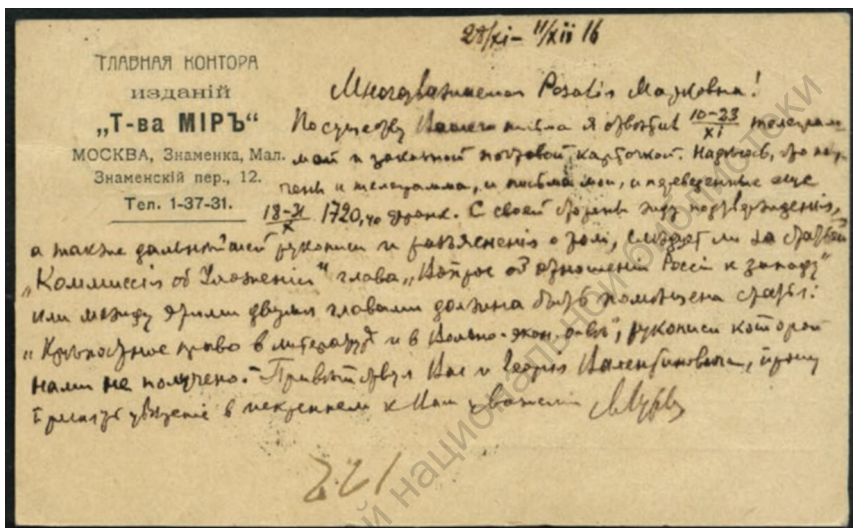 28/xi – 11/xii 16
ГЛАВНАЯ КОНТОРА
изданій
„Т-ва МІРЪ“
МОСКВА, Знаменка, Мал.
Знаменскій пер., 12.
Тел. 1-37-31.
Многоуважаемая Розалія Марковна!
По существу Вашего письма я ответил 10–23/XI телеграм
мой и заказной почтовой карточкой. Надеюсь, что по
чены и телеграмма, и письма мои, и переведенные еще
18–31/X 1720, франк. С своей стороны жду подтвержденія,
а также дальнѣйшей рукописи и разъясненія о том, следует ли за статьей
„Коммиссія об Уложеніи“ глава „Вопрос об отношении Россіи к западу“
или между этими двумя главами должна быть помещена статья:
„Крѣпостное право в литературѣ и в Вольно-экон. о-вѣ“, рукописи которой
нами не получено. Привѣтствуя Вас и Георгія Валентиновича, прошу
в искреннем к Вам уваженіи
221
й национальной библиотеки